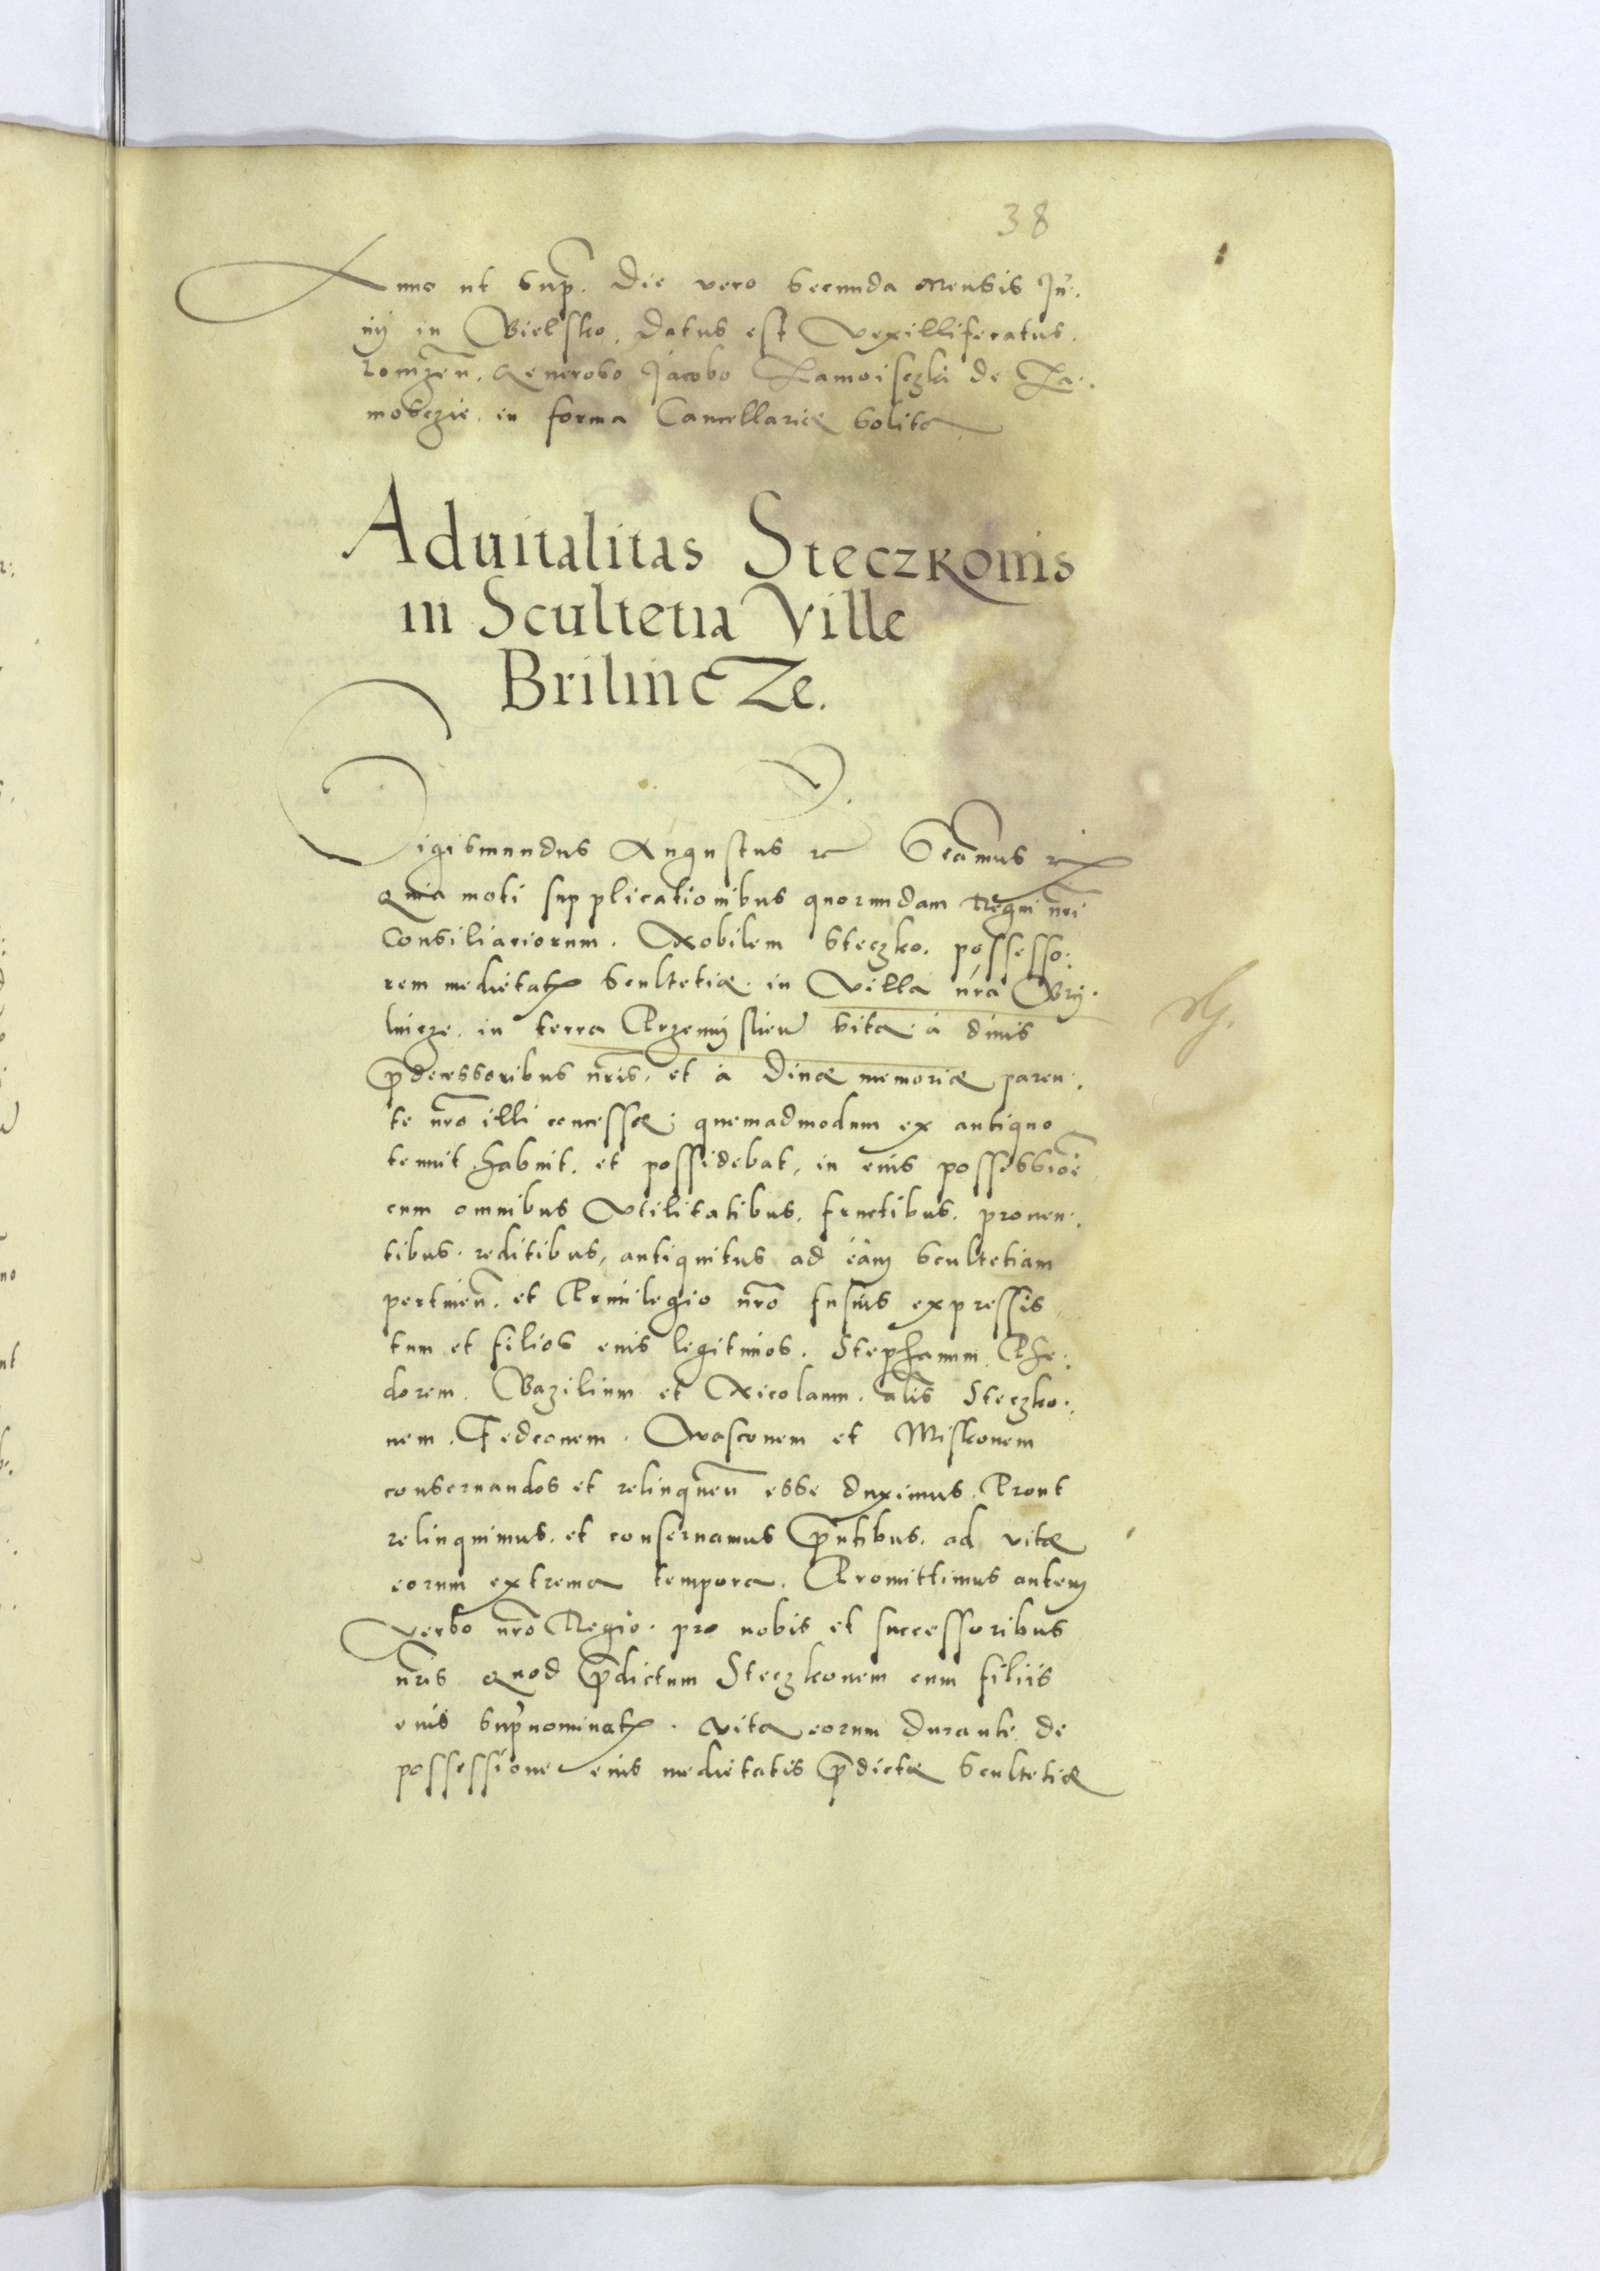 38
Anno ut sup̃. Die vero secunda Mensis Ju:
nij in Bielsko. Datus est Vexilliferatus.
Lomzeñ. Generoso Jacobo Zamoisczki de Za:
mosczie. in forma Cancellariæ solita
Aduitalitas Steczkonis
in Scultetia Ville
Brilincze.
Sigismundus Augustus &c Scamus &c
Quia moti supplicationibus quorundam Regni nr̃i
Consiliariorum. Nobilem Steczko. possesso:
rem medietatis scultetiæ. in Villa nr̃a Bry:
lincze. in terra Przemyslieñ sita. á diuis
p̃decessoribus nr̃is, et á Diuæ memoriæ paren:
te nr̃o illi concessæ; quemadmodum ex antiquo
tenuit habuit. et possidebat, in eius possessioẽ
cum omnibus Vtilitatibus. fructibus. prouen:
tibus. reditibus, antiquitus ad eam̃ scultetiam
pertineñ. et Priuilegio nr̃o fusius expressis
tum et filios eius legitimos. Stephanum. The:
dorem. Bazilium et Nicolaum. al̃s Steczko:
nem. Fedconem. Wasconem et Miskonem
conseruandos et relinqueñ esse duximus. Prout
relinquimus. et conseruamus p̃ntibus. ad vitæ
eorum extrema tempora. Promittimus autem
Verbo nr̃o Regio. pro nobis et successoribus
nr̃is Quod p̃dictum Steczkonem cum filiis
eius sup̃nominatis. vita eorum durante de
possessione eius medietatis p̃dictæ scultetiæ